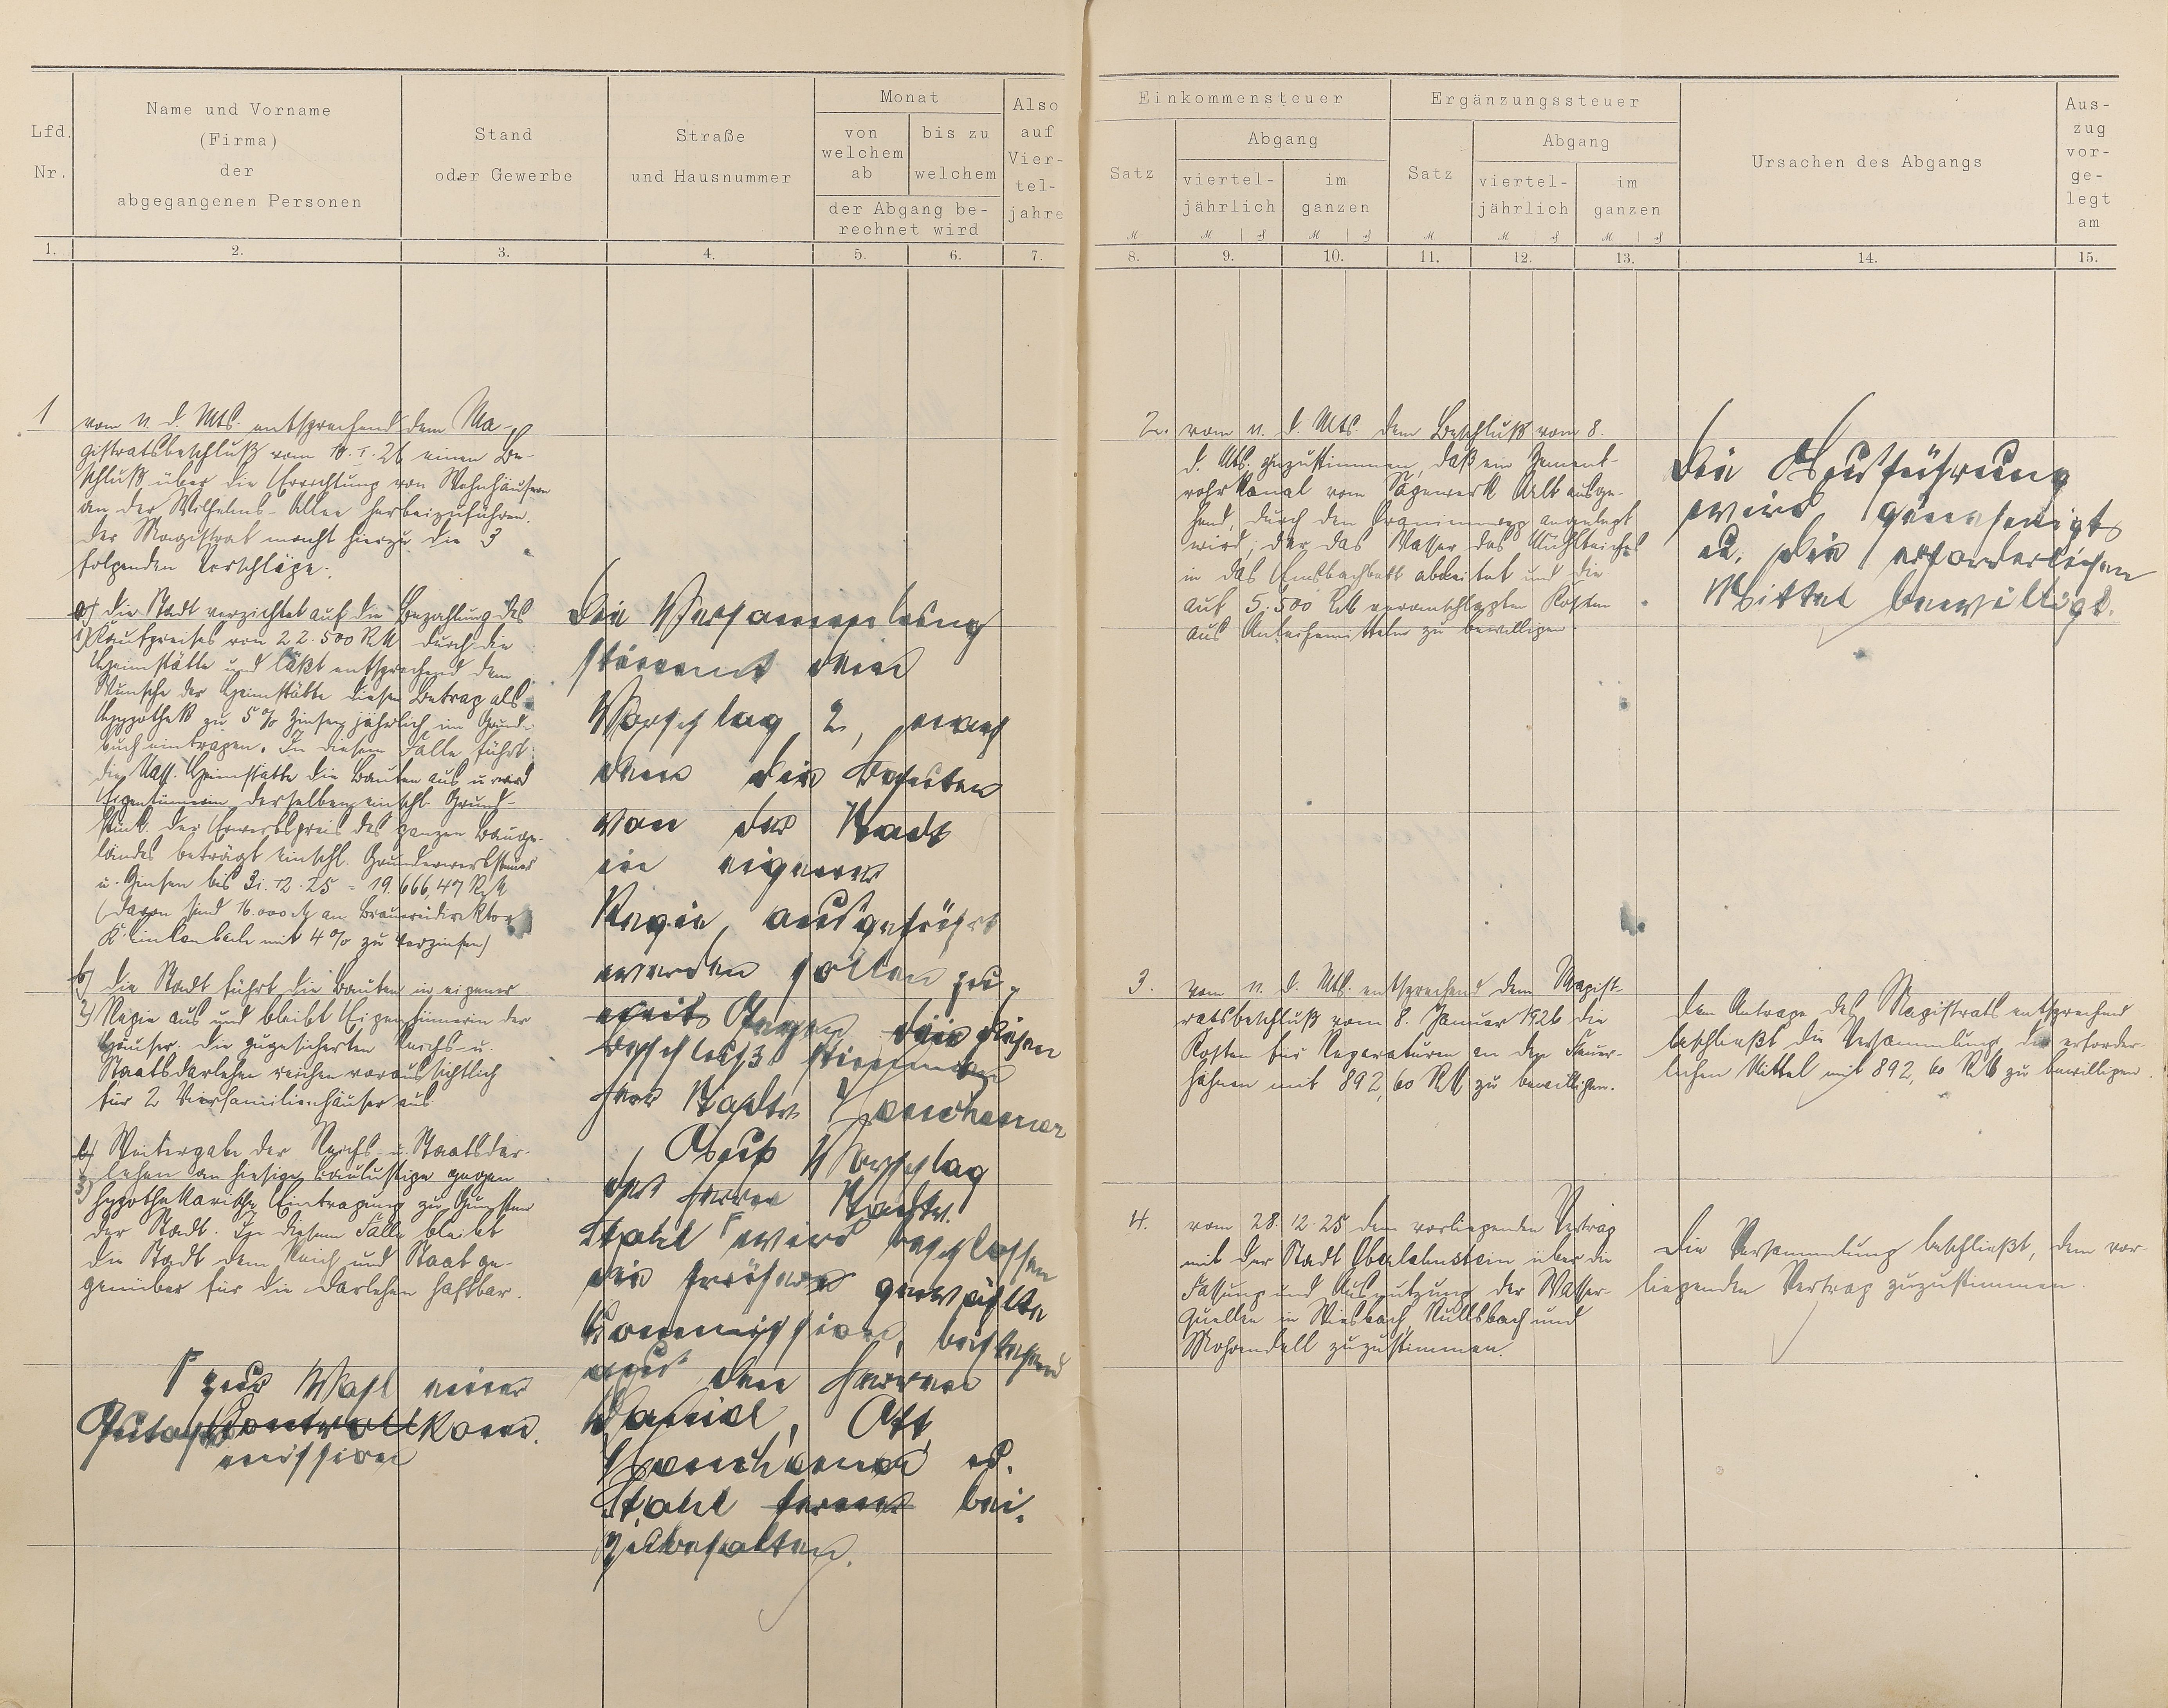 Lfd. Nr.
Name und Vorname
(Firma)
der
abgegangenen Personen
Stand
oder Gewerbe
Straße
und Hausnummer
Monat
von welchem ab
bis zu welchem
der Abgang be-
rechnet wird
Also auf Vier-tel-jahre
1. 2. 3. 4. 5. 6. 7.
1
vom 11. d. Mts. entsprechend dem Ma-
gistratsbeschluß vom 10. I. 26 einen Be-
schluß über die Errichtung von Wohnhäusern
an der Wilhelms-Allee herbeizuführen.
Der Magistrat macht hierzu die 3
folgenden Vorschläge:
a) Die Stadt verzichtet auf die Bezahlung des
1) Kaufpreises von 22.500 RM durch die
Heimstätte und läßt entsprechend dem
Wunsche der Heimstätte diesen Betrag als
Hypothek zu 5% Zinsen jährlich im Grund-
buch eintragen. In diesem Falle führt
die Nass. Heimstätte die Bauten aus u. wird
Eigentümerin derselben einschl. Grund-
stück. Der Erwerbspreis des ganzen Bauge-
ländes beträgt einschl. Grunderwerbsteuer
u. Zinsen bis 31.12.25 = 19.666,47 RM
(davon sind 16.000 M an Brauereidirektor
mit 4% zu verzinsen)
b) Die Stadt führt die Bauten in eigener
2) Regie aus und bleibt Eigentümerin der
Häuser. Die zugesicherten Reichs- u.
Staatsdarlehen reichen voraussichtlich
für 2 Vierfamilienhäuser aus.
c) Weitergabe der Reichs- u. Staatsdar-
3) lehen an hiesige Baulustige gegen
hypothekarische Eintragung zu Gunsten
der Stadt. In diesem Falle bleibt
die Stadt dem Reich und Staat ge-
genüber für die Darlehen haftbar.
Γ zur Wahl einer
Kontrollkom-
mission
Die Versammlung
stimmt dem
Vorschlag 2, nach
dem die Bauten
von der Stadt
in eigener
Regie ausgeführt
werden sollen zu.
Gegen diesen
Beschluß stimmte
Herr Stadtv.
Auf Vorschlag
des Herrn Stadtv.
Stahl Γ wird beschlossen
die früher gewählte
Kommission, bestehend
aus den Herren
Daniel, Ott,
u.
Stahl ferner bei-
zubehalten.
Einkommensteuer
Satz
Abgang
viertel-jährlich
im ganzen
Ergänzungssteuer
Satz
Abgang
viertel-jährlich
im ganzen
Ursachen des Abgangs
Aus-zug vor-ge-legt am
M M ₰ M ₰ M M ₰ M ₰
8. 9. 10. 11. 12. 13. 14. 15.
2. vom 11. d. Mts. dem Beschluß vom 8.
d. Mts. zuzustimmen, daß ein Zement-
rohrkanal vom Sägewerk Alt ausge-
hend, durch den Oranienweg angelegt
wird, der das Wasser des Mühlteiches
in das Emsbachbett ableitet und die
auf 5.500 RM veranschlagten Kosten
aus Anleihemitteln zu bewilligen.
Die Ausführung
wird genehmigt
u. die erforderlichen
Mittel bewilligt.
3. vom 11. d. Mts. entsprechend dem Magist-
ratsbeschluß vom 8. Januar 1926 die
Kosten für Reparaturen an den Feuer-
hähnen mit 892,60 RM zu bewilligen.
Dem Antrage des Magistrats entsprechend
beschließt die Versammlung die erforder-
lichen Mittel mit 892,60 RM zu bewilligen.
4. vom 28.12.25 dem vorliegenden Vertrag
mit der Stadt Oberlahnstein über die
Fassung und Ausnutzung der Wasser-
quellen in Wiesbach, Nullsbach und
Mohrendell zuzustimmen.
Die Versammlung beschließt, dem vor-
liegenden Vertrag zuzustimmen.